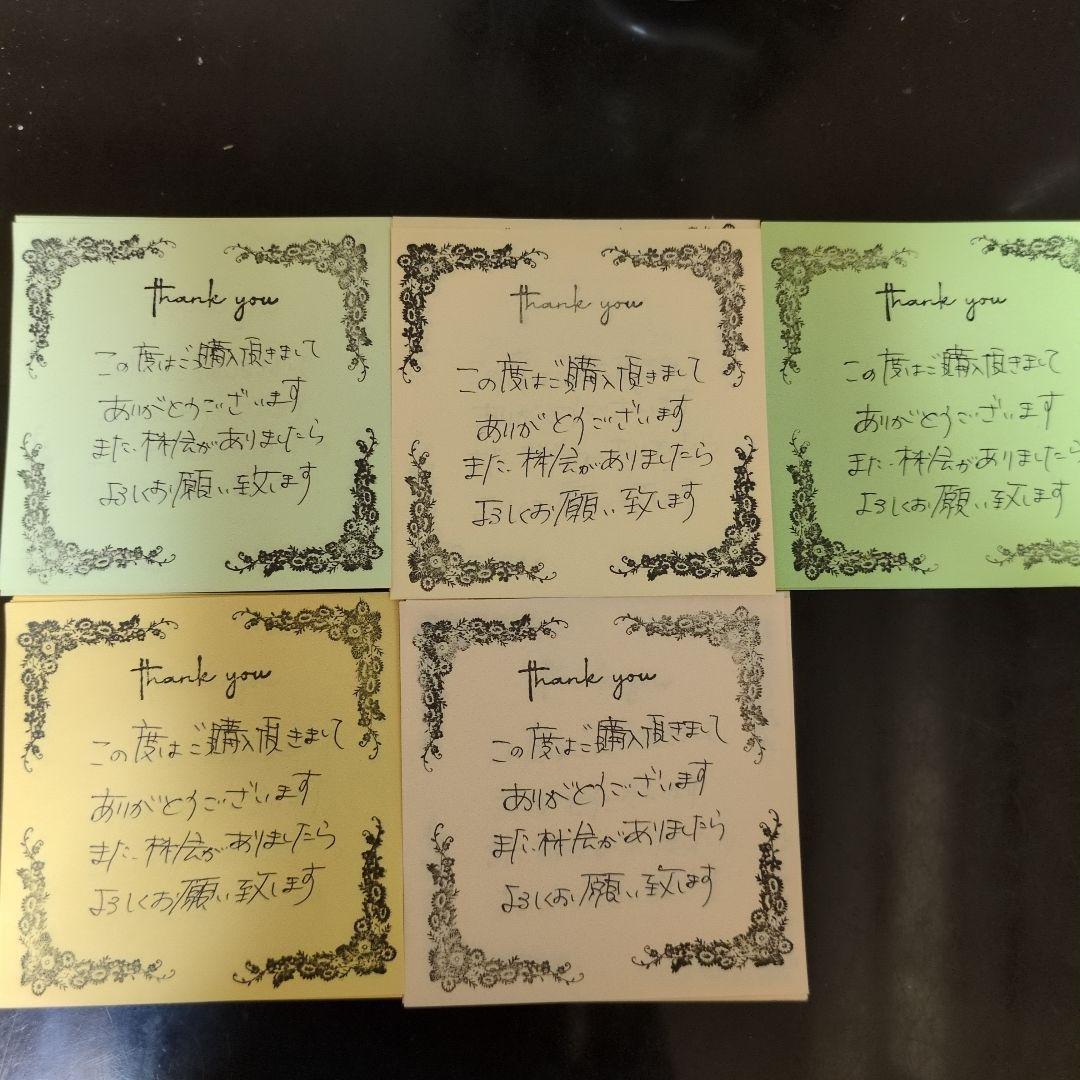 Thank you
この度はご購入頂きまして
ありがとうございます
また、機会がありましたら
よろしくお願い致します
Thank you
この度はご購入頂きまして
ありがとうございます
また、機会がありましたら
よろしくお願い致します
Thank you
この度はご購入頂きまして
ありがとうございます
また、機会がありましたら
よろしくお願い致します
Thank you
この度はご購入頂きまして
ありがとうございます
また、機会がありましたら
よろしくお願い致します
Thank you
この度はご購入頂きまして
ありがとうございます
また、機会がありましたら
よろしくお願い致します